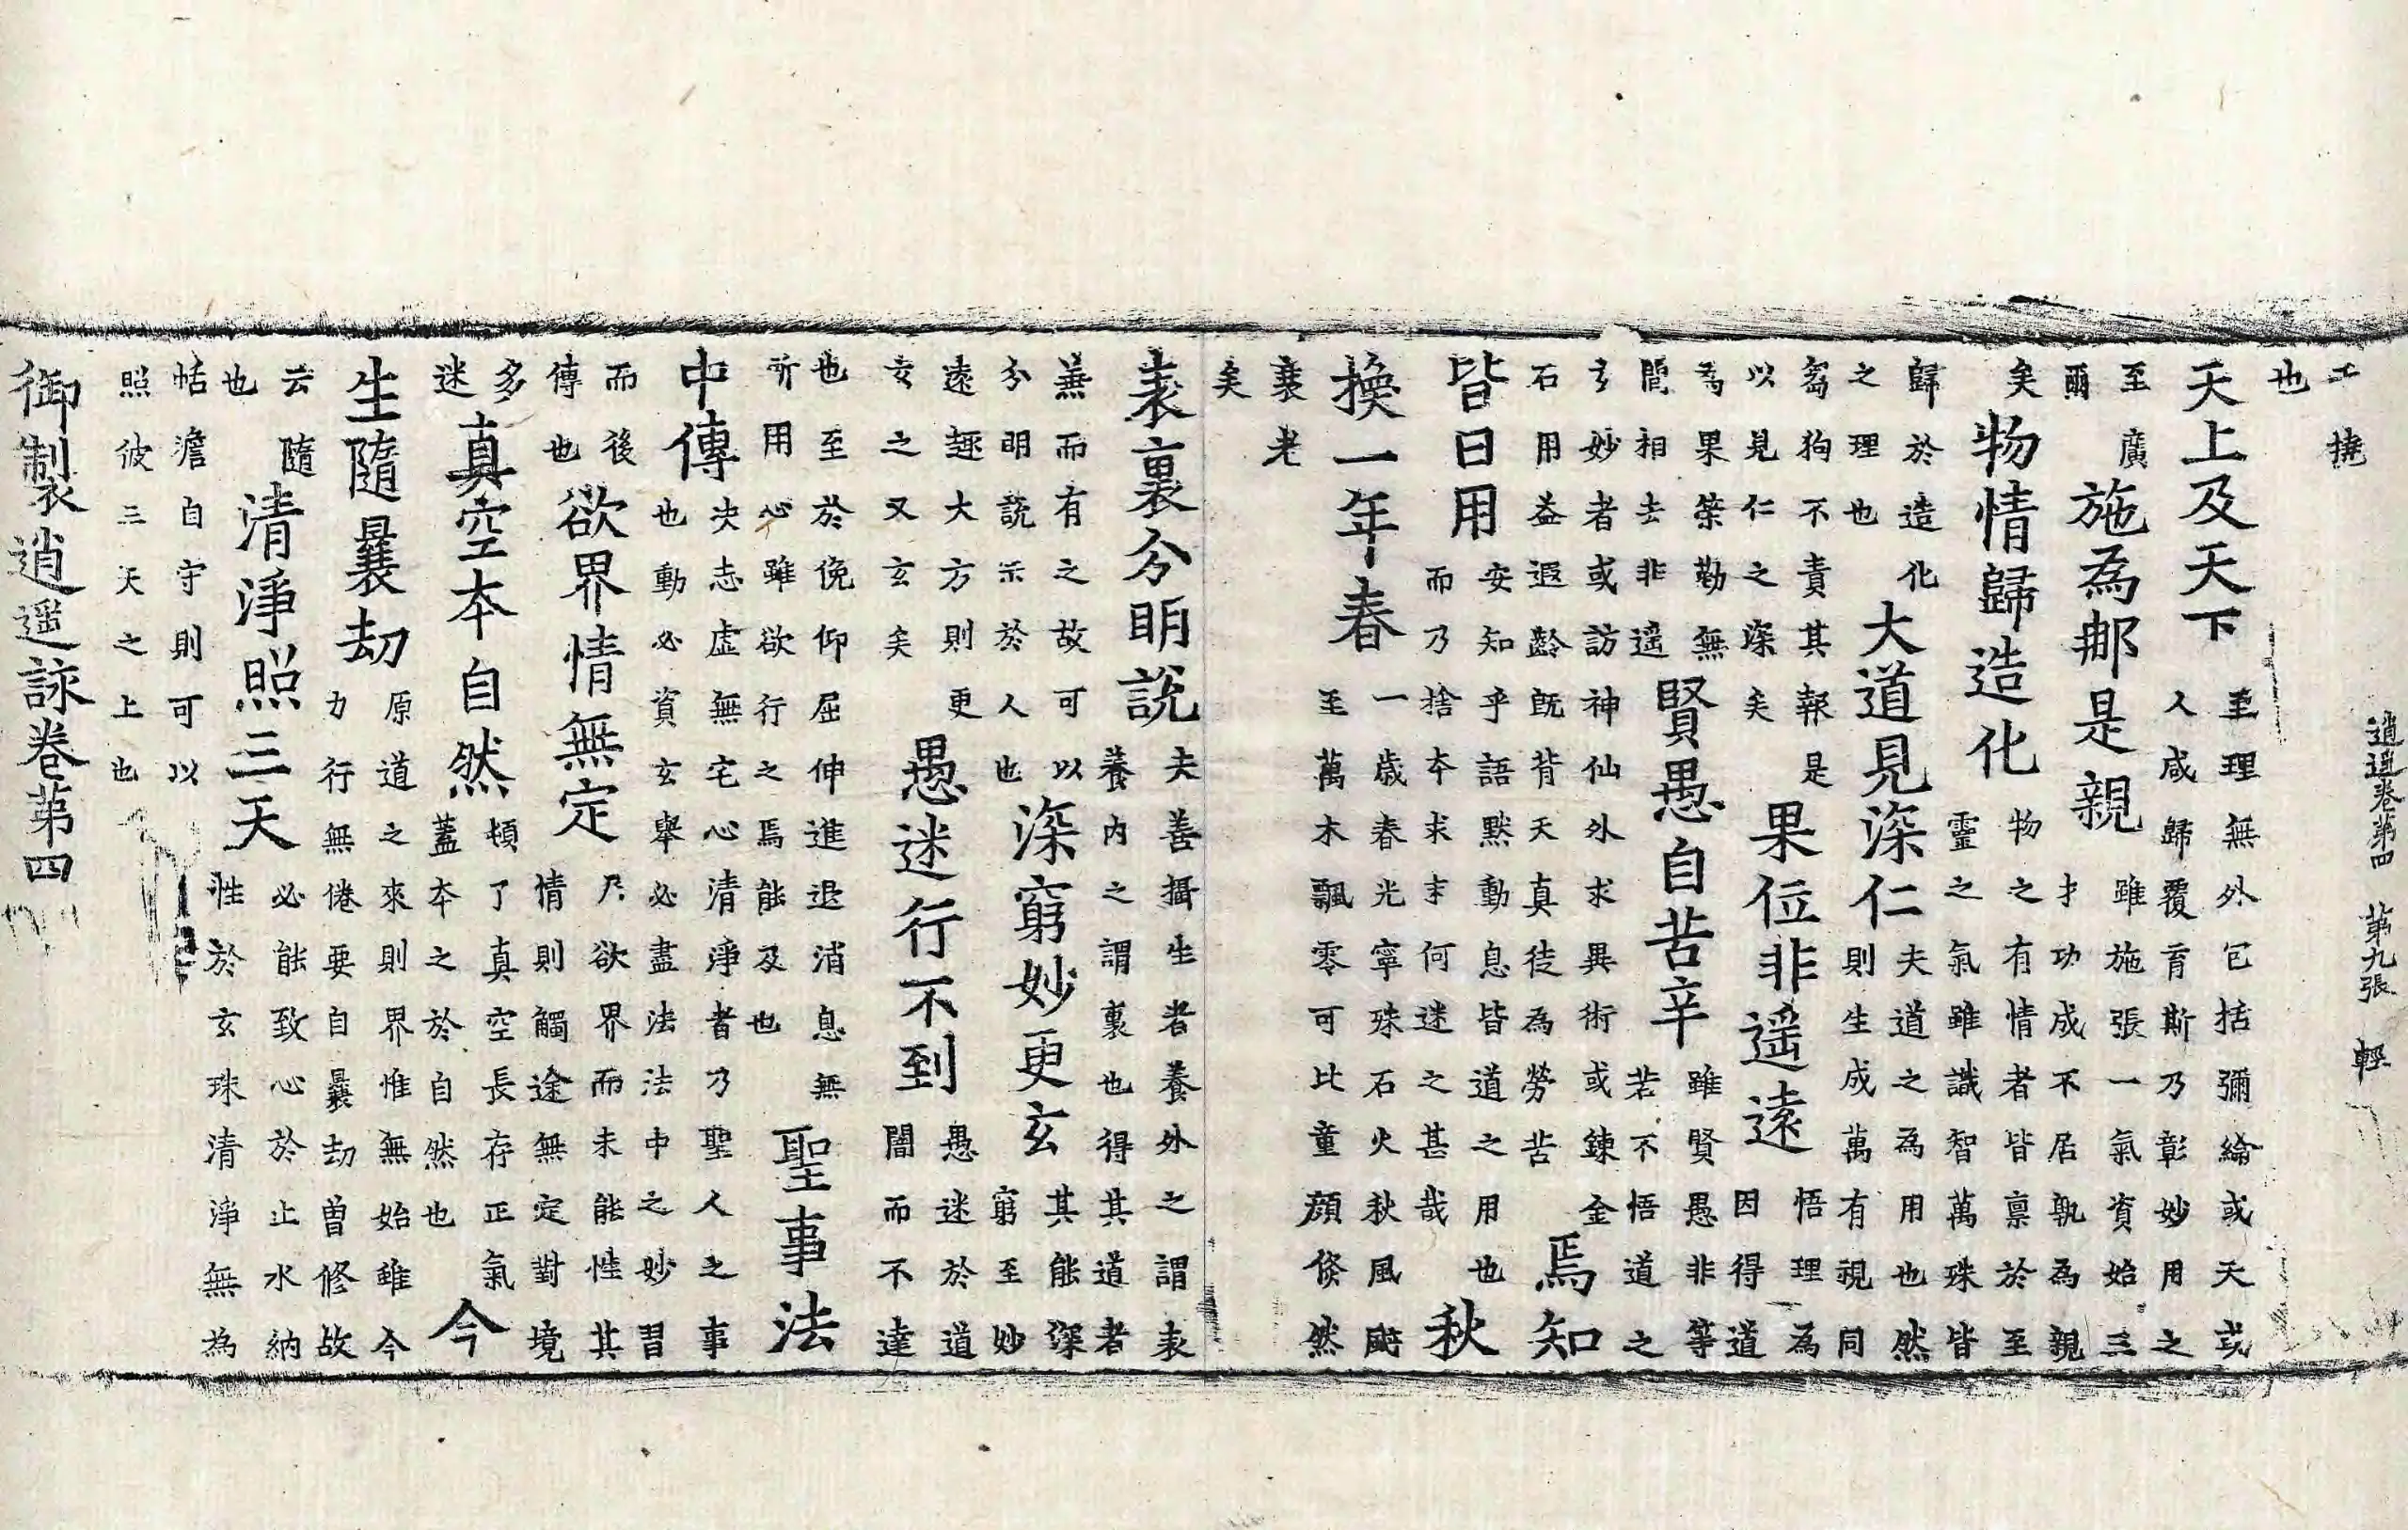 逍遥卷第四 第九張 輕
工撓
也
天上及天下 至理無外包括彌綸或天或
人咸歸覆育斯乃彰妙用之
至廣
爾 施為那是親 雖施張一氣資始三
才功成不居孰為親
矣 物情歸造化 物之有情者皆禀於至
靈之氣雖識智萬殊皆
歸於造化
之理也 大道見深仁 夫道之為用也然
則生成萬有視同
芻狗不責其報是
以見仁之深矣 果位非遥遠 悟理為
因得道
為果榮勤無
間相去非遥 賢愚自苦辛 雖賢愚非等
若不悟道之
玄妙者或訪神仙外求異術或鍊金
石用益遐齡旣背天真徒為勞苦 焉知
皆日用 安知乎語默動息皆道之用也
而乃捨本求末何迷之甚哉 秋
換一年春 一歲春光寧殊石火秋風颭
至萬木飄零可比童顏倏然
衰老
矣
表裏分明說 夫善攝生者養外之謂表
養內之謂裏也得其道者
無而有之故可以
分明說示於人也 深窮妙更玄 其能深
窮至妙
遠趣大方則更
玄之又玄矣 愚迷行不到 愚迷於道
闇而不達
也至於俛仰屈伸進退消息無
所用心雖欲行之焉能及也 聖事法
中傳 决志虛無宅心清淨者乃聖人之事
也動必資玄舉必盡法法中之妙習
而後
傳也 欲界情無定 凡欲界而未能性其
情則觸途無定對境
多
迷 真空本自然 頓了真空長存正氣
蓋本之於自然也 今
生隨曩劫 原道之來則界惟無始雖今
力行無倦要自曩劫曾修故
云隨
也 清淨照三天 必能致心於止水納
性於玄珠清淨無為
恬澹自守則可以
照彼三天之上也
御製逍遥詠卷第四